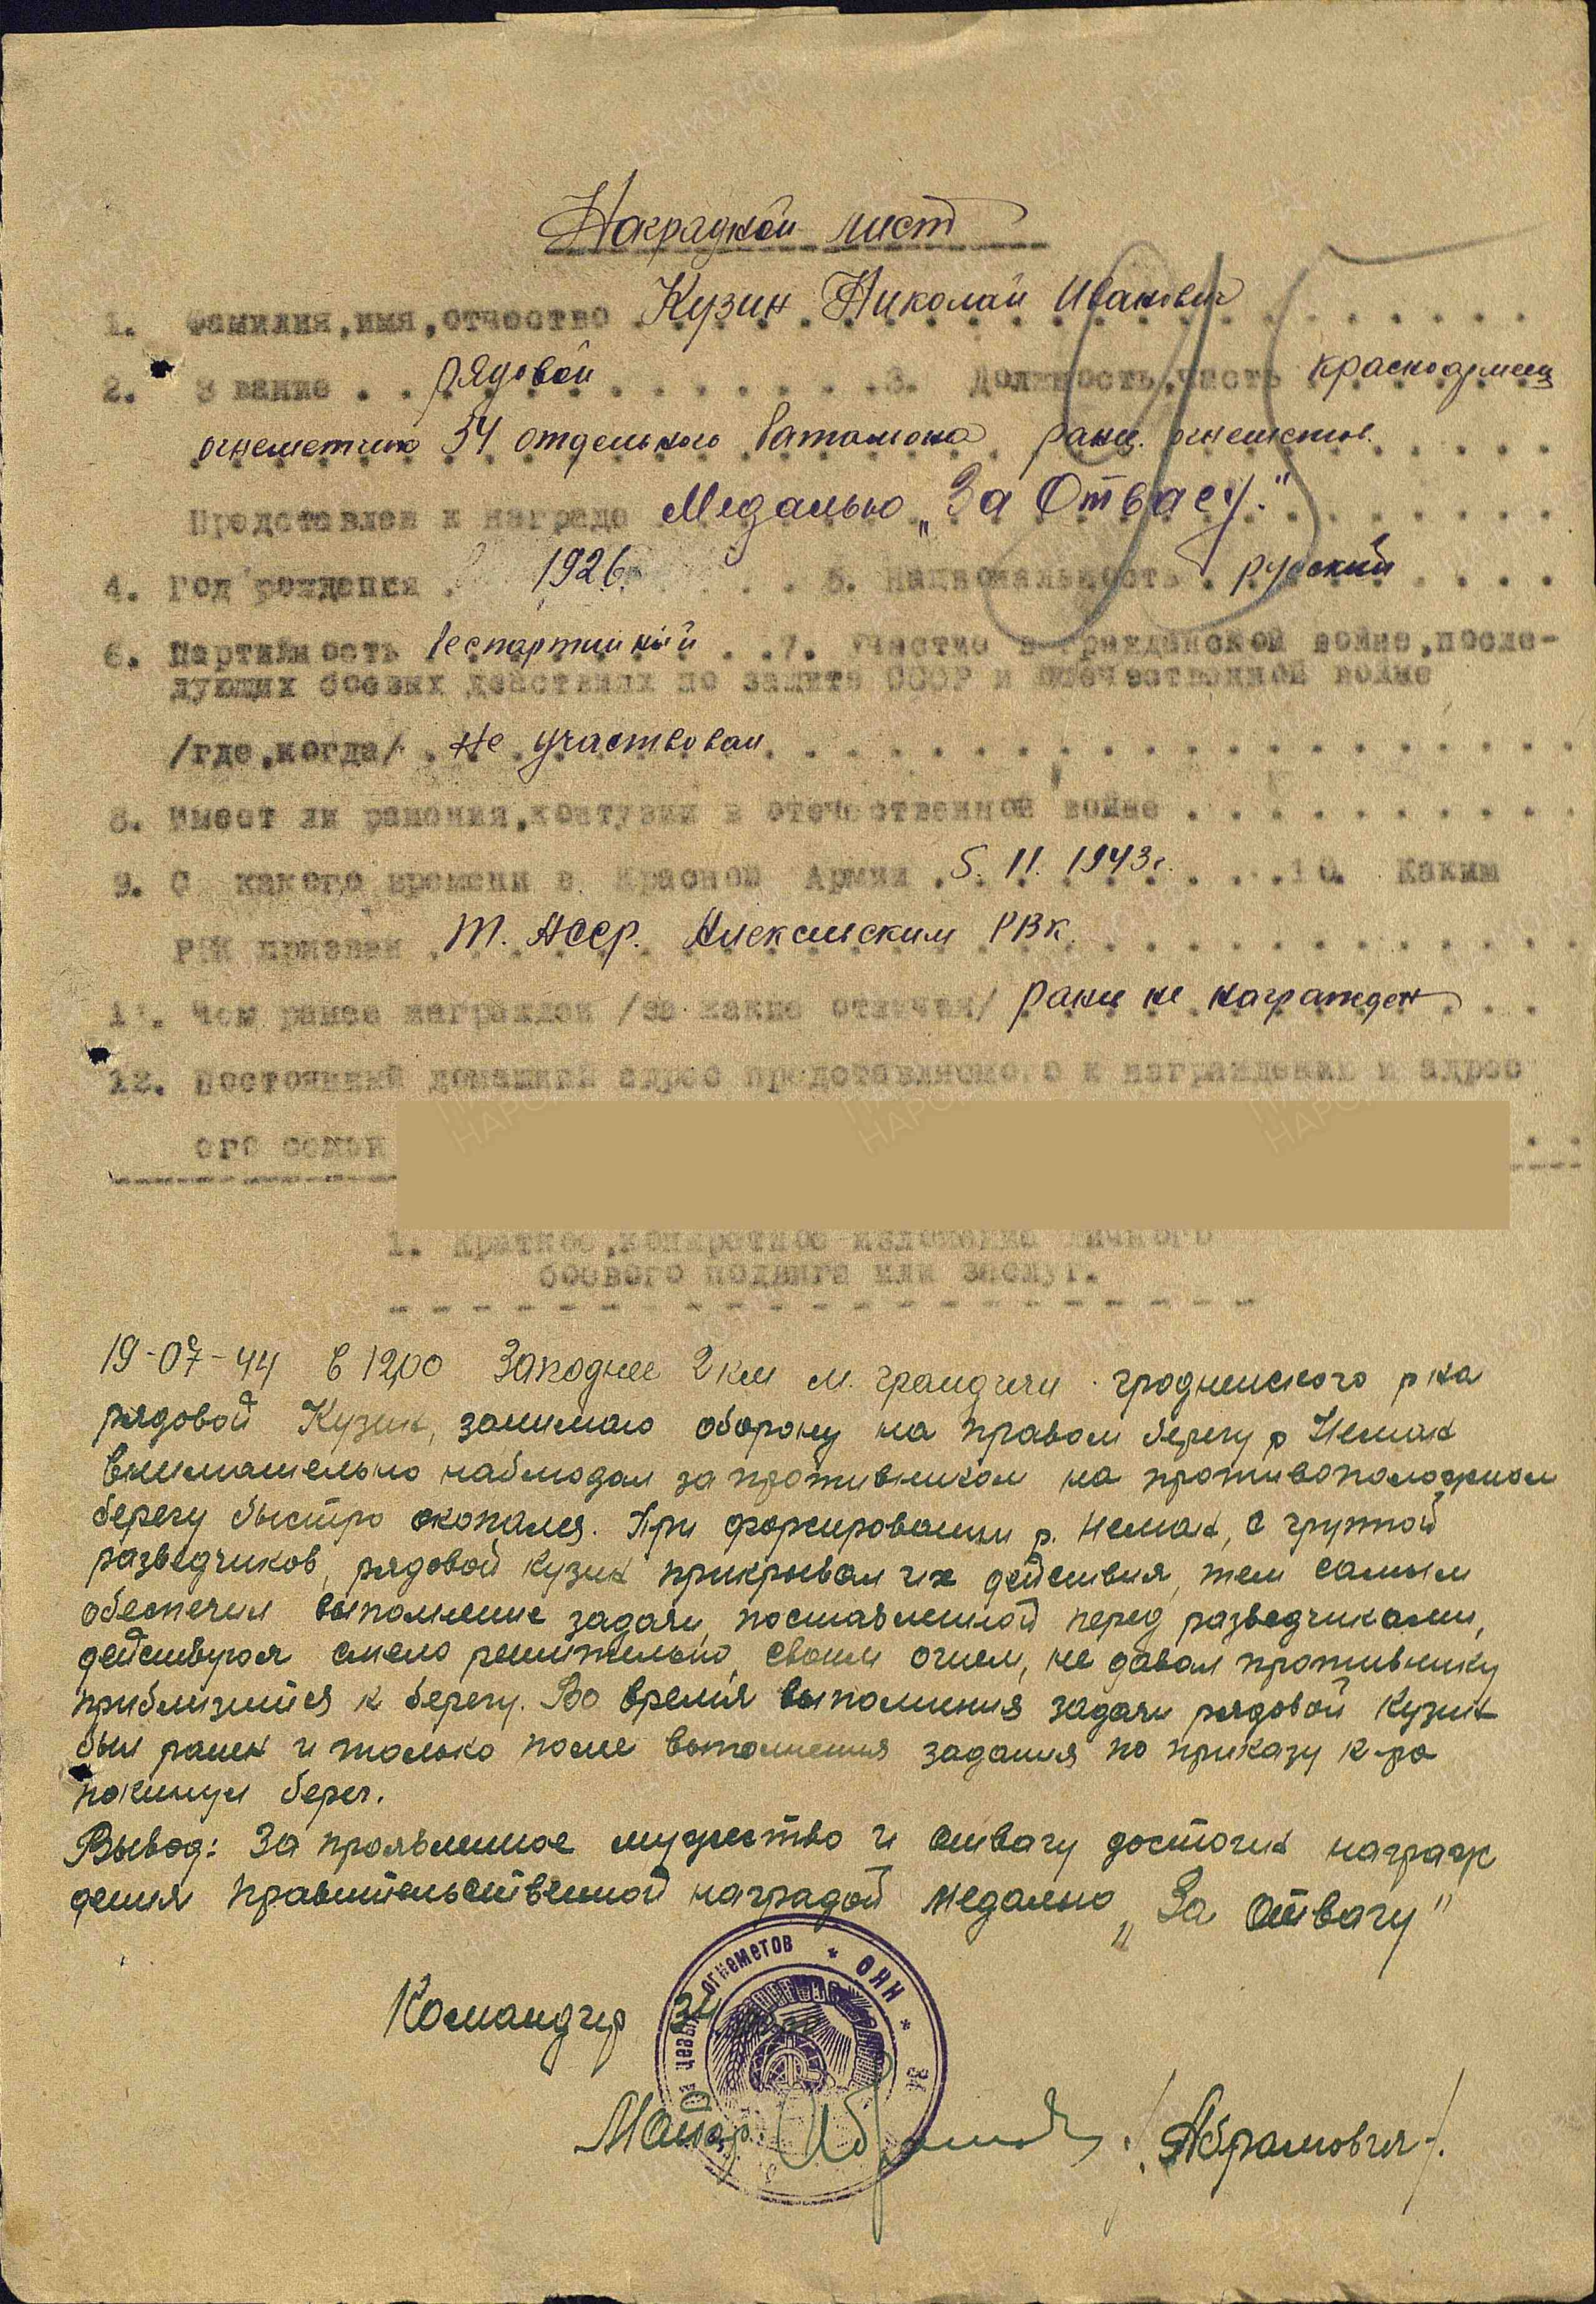 Наградной лист
1. Фамилия, имя, отчество Кузин Николай Иванович
2. Звание рядовой 3. Должность, часть красноармеец
огнеметчик 34 отдельного батальона ранц. огнеметов.
Представлен к награде Медалью „За Отвагу."
4. Год рождения 1926 5. Национальность русский
6. Партийность беспартийный 7. Участие в гражданской войне, после-
дующих боевых действиях по защите СССР и отечественной войне
/где, когда/ не участвовал
8. Имеет ли ранения, контузии в отечественной войне
9. С какого времени в Красной Армии 5.11.1943г. 10. Каким
РВК призван Т. АССР. РВК.
11. Чем ранее награжден /за какие отличия/ ранее не награжден
12. Постоянный домашний адрес представляемого к награждению и адрес
его семьи
1. Краткое, конкретное изложение личного
боевого подвига или заслуг.
19-07-44 в 12,00 Западнее 2 км м. Грандичи гродненского р-на
рядовой Кузин, занимаю оборону на правом берегу р Неман
внимательно наблюдал за противником на противоположном
берегу быстро окопался. При форсировании р. Неман, с группой
разведчиков, рядовой Кузин прикрывал их действия, тем самым
обеспечил выполнение задачи, поставленной перед разведчиками,
действуя смело решительно, своим огнем, не давал противнику
приблизится к берегу. Во время выполнения задачи рядовой Кузин
был ранен и только после выполнения задания по приказу к-ра
покинул берег.
Вывод: За проявленное мужество и отвагу достоин награж
дения правительственной наградой медалью „За отвагу"
Командир 34
огнеметов * ОЯН * 34
Майор /Абрамович/.